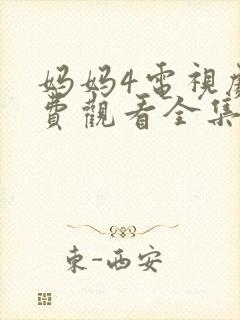 妈妈4電視劇
費觀看全集
東-西安